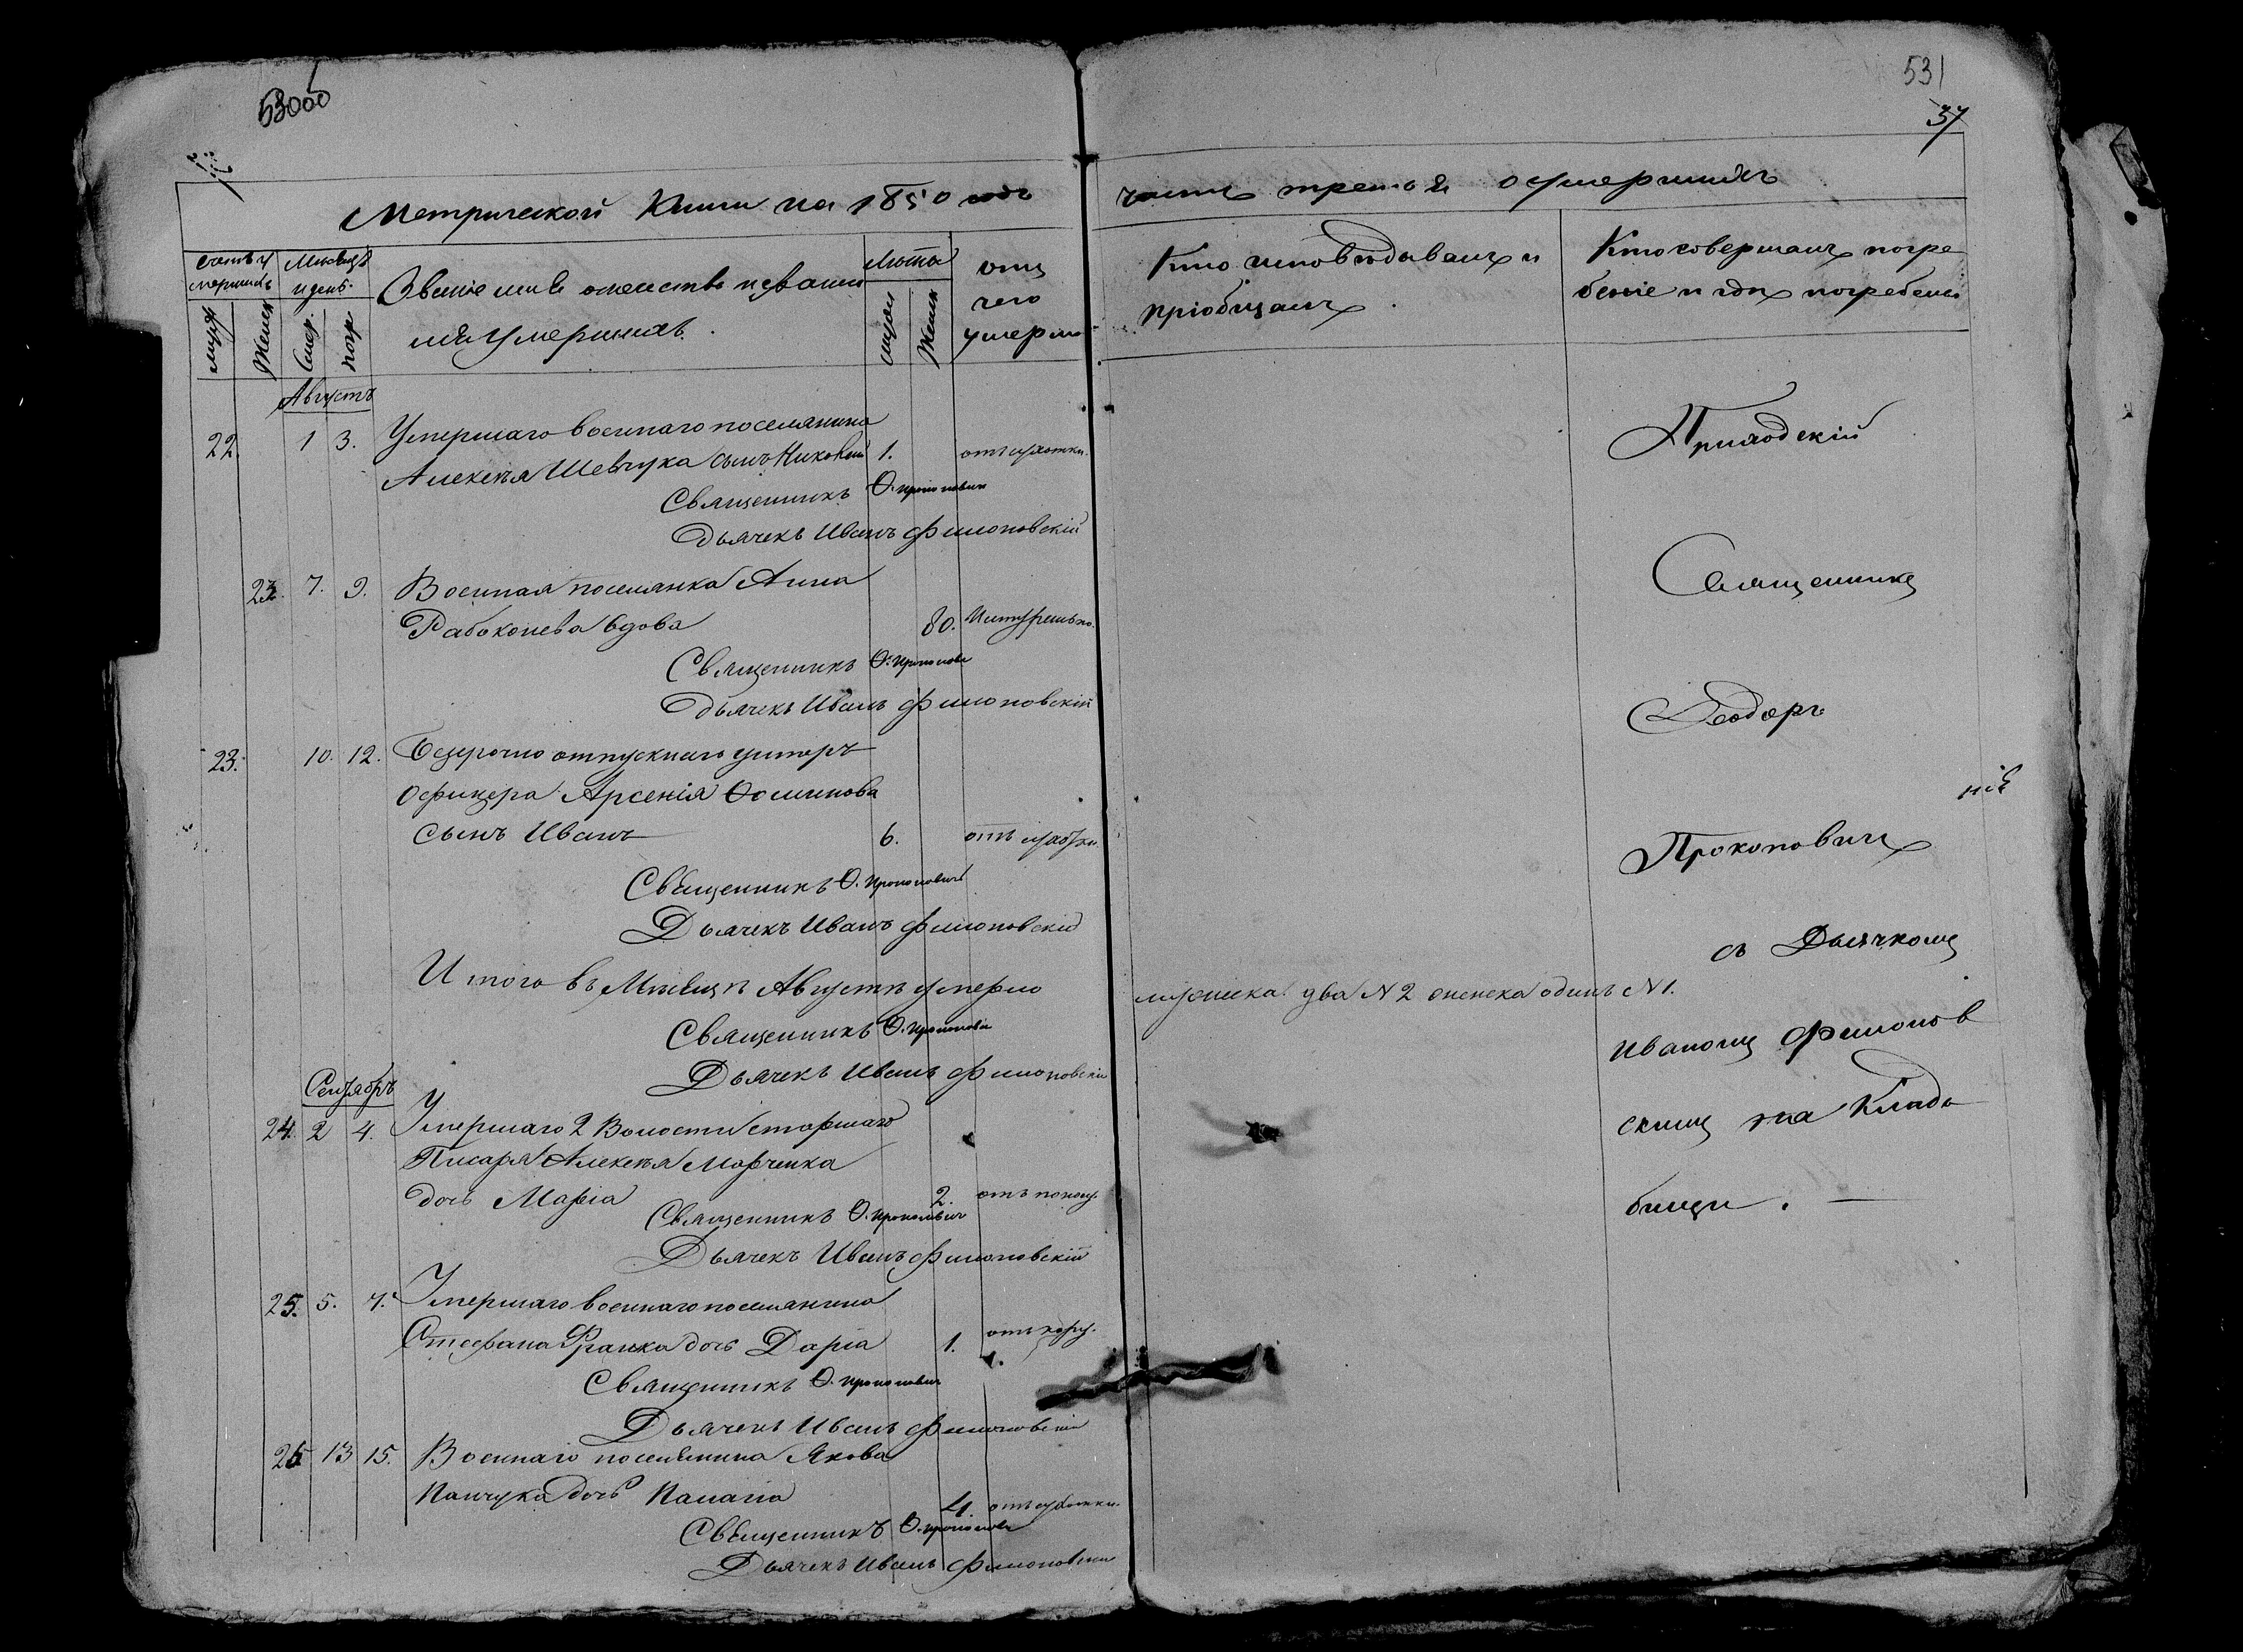 531
37
Метрической Книги на 1850 годъ
часть третья о умершихъ
счетъ у
мершихъ
Мѣсяцъ
и день.
Званіе имя отечество и фамил
лія умершихъ.
Лѣта
отъ
чего
умерло
Кто исповѣдывалъ и
пріобщалъ.
Кто совершалъ погре
беніе и гдѣ погребены
муж
Женск
Смер.
погр
муж
Женск
Августъ
22. 1 3. Умершаго военнаго поселянина
Алексѣя Шевчука сынъ Николай 1. отъ сухотки.
Священникъ Ѳ. Прокоповичъ
Дьячекъ Иванъ Филоновскій
23. 7. 9. Военная поселянка Анна
Рабоконева вдова 80. Натурально.
Священникъ Ѳ. Прокопови
Дьячекъ Иванъ Филоновскій
23. 10. 12. Безсрочно отпускнаго унтеръ
Офицера Арсенія
сынъ Иванъ 6. отъ сухотки.
Священникъ Ѳ. Прокоповичъ
Дьячекъ Иванъ Филоновскій
Итого въ Мѣсяцѣ Августѣ умерло
мужеска два N 2 женска одинъ N 1.
Священникъ Ѳ. Прокопови
Дьячекъ Иванъ Филоновскій
Сентябрь
24. 2 4. Умершаго 2 Волости старшаго
Писаря Алексѣя Марченка
дочь Марія 2. отъ
Священникъ Ѳ. Прокоповичъ
Дьячекъ Иванъ Филоновскій
25. 5. 7. Умершаго военнаго поселянина
Стефана Франка дочь Дарія 1. отъ
Священникъ Ѳ. Прокоповичъ
Дьячекъ Иванъ Филоновскій
26 13 15. Военнаго поселянина Якова
Панчука дочь Палагія 4. отъ сухотки.
Священникъ Ѳ. Прокопови
Дьячекъ Иванъ Филоновскій
Приходскій
Священникъ
Ѳеодоръ
Прокоповичъ
съ Дьячкомъ
Иваномъ Филонов
скимъ на Кладо
бищи.